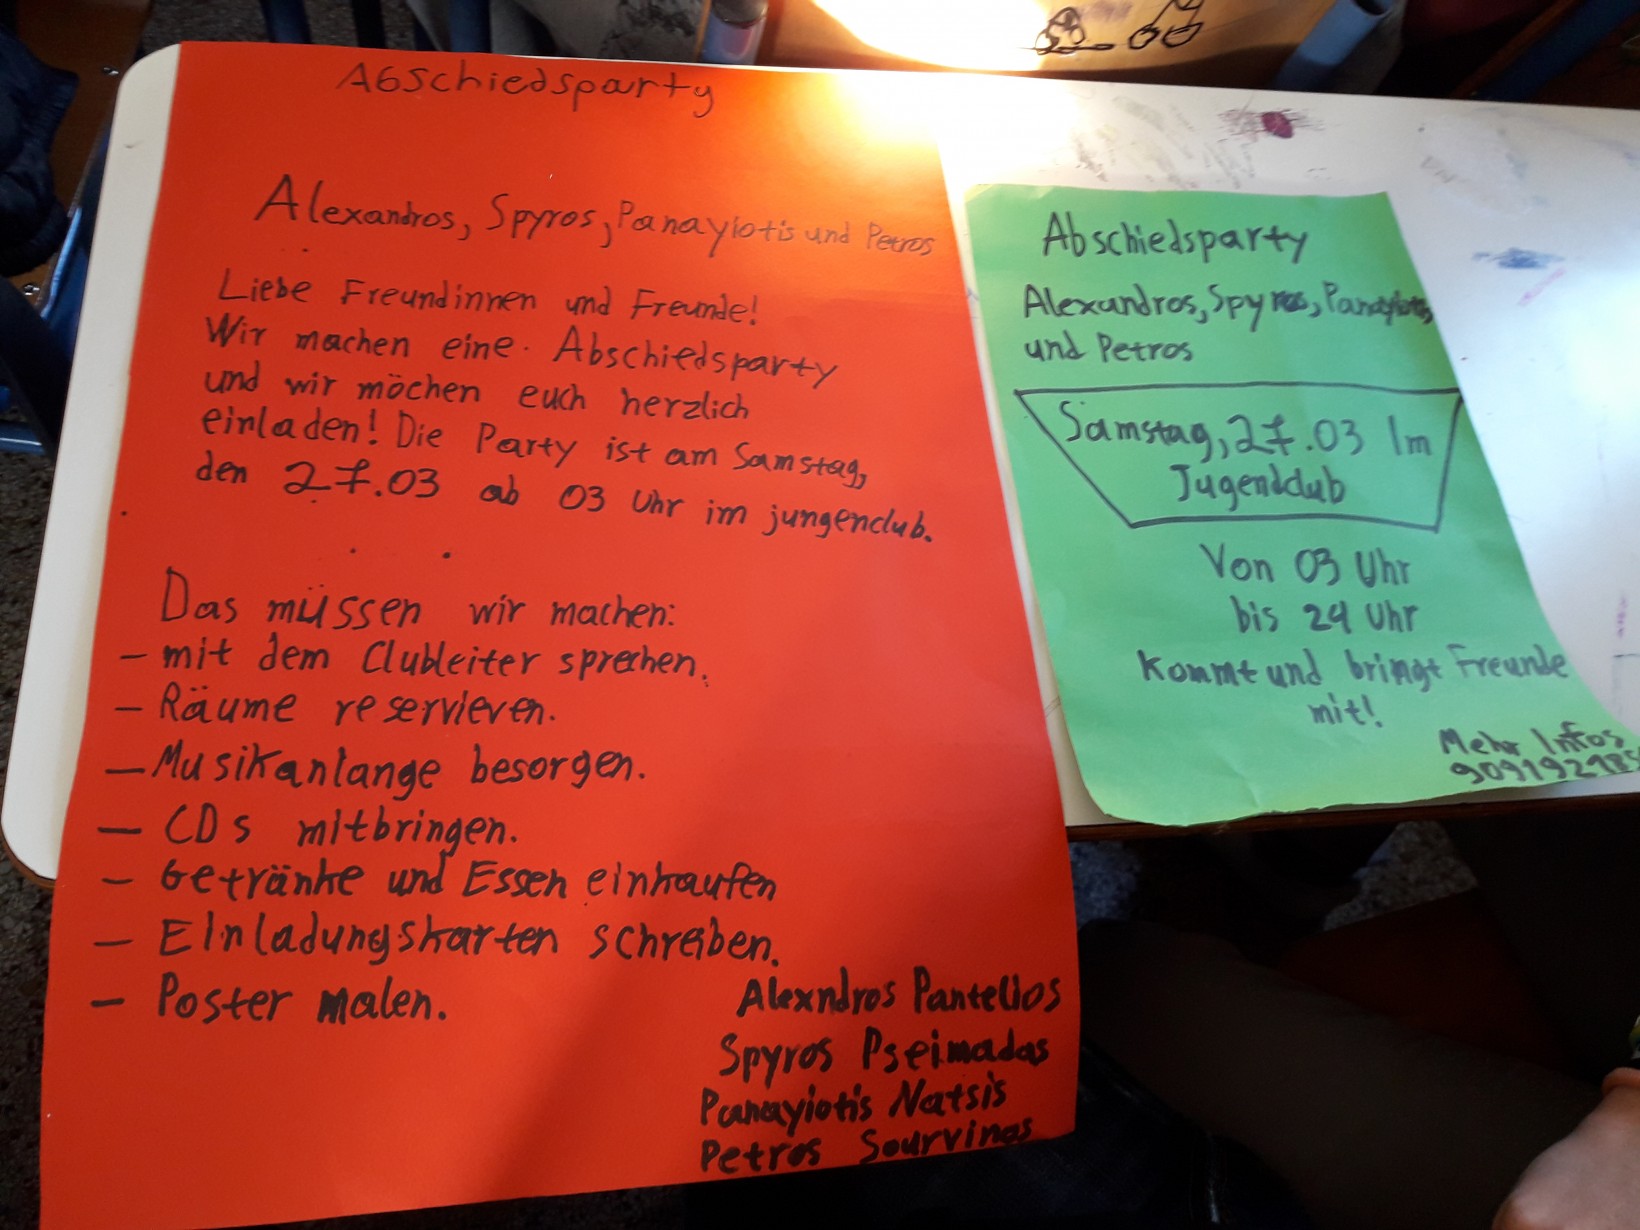 Abschiedsparty
Alexandros, Spyros, Panayiotis und Petros
Liebe Freundinnen und Freunde!
Wir machen eine Abschiedsparty
und wir möchen euch herzlich
einladen! Die Party ist am Samstag,
den 27.03 ab 03 Uhr im jungenclub.
Das müssen wir machen:
- mit dem Clubleiter sprechen.
- Räume reservieren.
- Musikanlange besorgen.
- CDs mitbringen.
- Getränke und Essen einkaufen
- EInladungskarten schreiben.
- Poster malen.
Alexndros Pantelios
Spyros Pseimadas
Panayiotis Natsis
Petros Sourvinos
Abschiedsparty
Alexandros, Spyros, Panayiotis
und Petros
Samstag, 27.03 Im
Jugendclub
Von 03 Uhr
bis 24 Uhr
Kommt und bringt Freunde
mit!
Mehr Infos